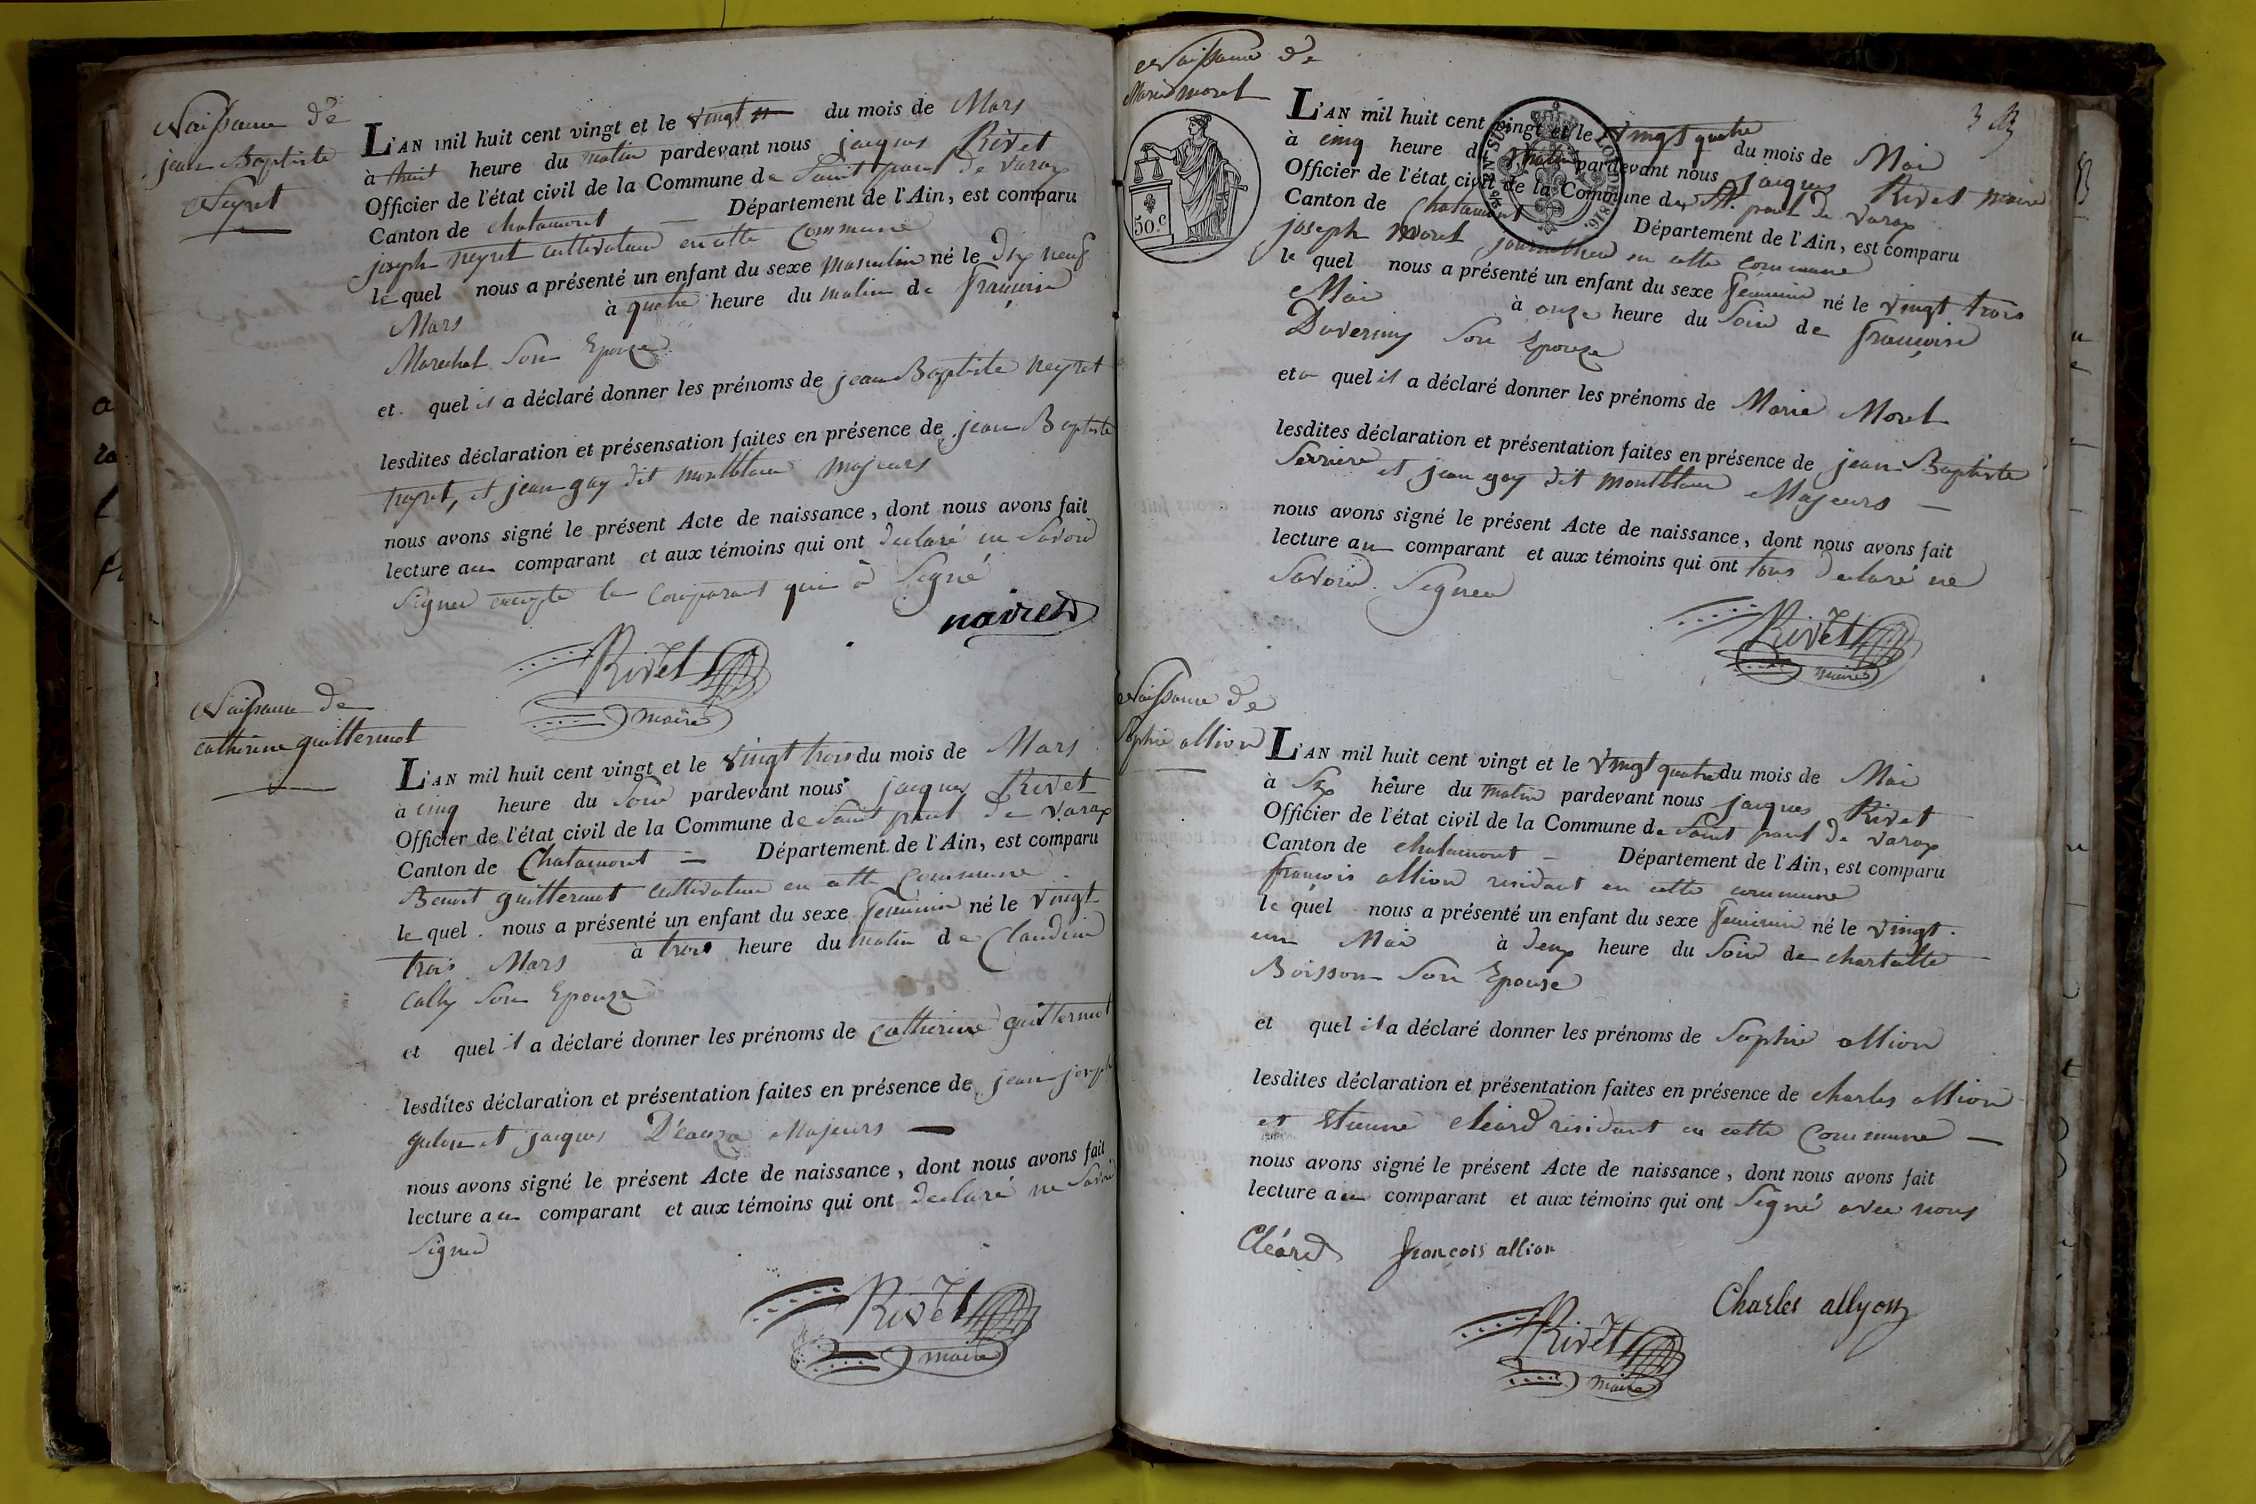 Naissance de
jean Baptiste
Neyret
L'AN mil huit cent vingt et le vingt du mois de Mars
à huit heure du matin pardevant nous jacques Rivet
Officier de l'état civil de la Commune de Saint paul de varax
Canton de chalamont — Département de l'Ain, est comparu
joseph neyret cultivateur en cette Commune
le quel nous a présenté un enfant du sexe masculin né le dix neuf
Mars à quatre heure du matin de françoise
Marechal Son Epouze
et quel il a déclaré donner les prénoms de jean Baptiste neyret
lesdites déclaration et présensation faites en présence de jean Baptiste
neyret, et jean gay dit montblanc majeurs
nous avons signé le présent Acte de naissance, dont nous avons fait
lecture au comparant et aux témoins qui ont declaré ne Savoir
Signer excepte le Comparant qui à Signé
nairet
Rivet
maire
Naissance de
catherine guillermot
L'AN mil huit cent vingt et le vingt trois du mois de Mars
à cinq heure du Soir pardevant nous jacques Rivet
Officier de l'état civil de la Commune de Saint paul de varax
Canton de Chalamont — Département de l'Ain, est comparu
Benoit guillermot cultivateur en cette Commune
le quel nous a présenté un enfant du sexe feminin né le vingt
trois Mars à trois heure du matin de Claudine
Cally Son Epouze
et quel il a déclaré donner les prénoms de catherine guillermot
lesdites déclaration et présentation faites en présence de jean joseph
et jacques Majeurs —
nous avons signé le présent Acte de naissance, dont nous avons fait
lecture au comparant et aux témoins qui ont declaré ne Savoir
Signer
Rivet
maire
Naissance de
Marie morel
50.c
L'AN mil huit cent vingt et le vingt quatre du mois de Mai
à cinq heure du matin pardevant nous jacques Rivet maire
Officier de l'état civil de la Commune de St. paul de varax
Canton de Chalamont Département de l'Ain, est comparu
joseph Morel journallier en cette commune
le quel nous a présenté un enfant du sexe feminin né le vingt trois
Mai à onze heure du Soir de françoise
Duverny Son Epouze
et quel il a déclaré donner les prénoms de Marie Morel
lesdites déclaration et présentation faites en présence de jean Baptiste
Serriere et jean gay dit montblanc Majeurs —
nous avons signé le présent Acte de naissance, dont nous avons fait
lecture au comparant et aux témoins qui ont tous declaré ne
Savoir Signer
Rivet
maire
Naissance de
Sophie allion
L'AN mil huit cent vingt et le vingt quatre du mois de Mai
à Six heure du matin pardevant nous jacques Rivet
Officier de l'état civil de la Commune de Saint paul de varax
Canton de chalamont — Département de l'Ain, est comparu
françois allion residant en cette commune
le quel nous a présenté un enfant du sexe feminin né le vingt
un Mai à deux heure du Soir de charlotte
Boisson Son Epouse
et quel il a déclaré donner les prénoms de Sophie allion
lesdites déclaration et présentation faites en présence de charles allion
et Etienne cléard residant en cette Commune —
nous avons signé le présent Acte de naissance, dont nous avons fait
lecture au comparant et aux témoins qui ont Signé avec nous
Cléard françois allion
Charles allyon
Rivet
maire